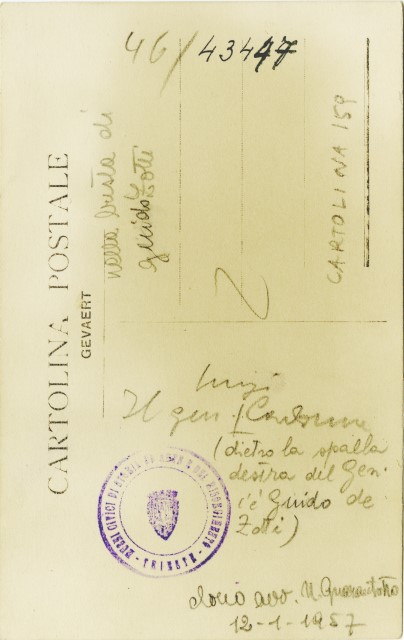 46/43447
CARTOLINA POSTALE
GEVAERT
nella busta di
Guido Zotti
CARTOLINA 159
2
Luigi
Il gen.
(dietro la spalla
destra del Gen.
c'è Guido de
Zotti)
MUSEI CIVICI DI STORIA ED ARTE E DEL RISORGIMENTO
TRIESTE
dono avv. N. Quarantotto
12-1-1957